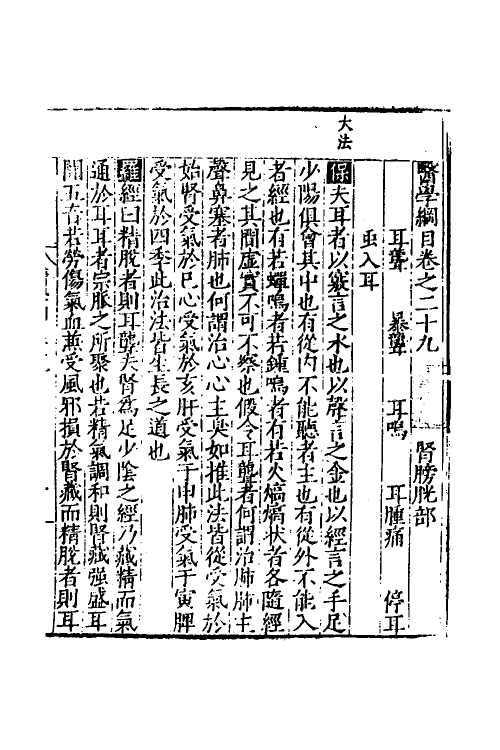 醫學綱目卷之二十九　腎膀胱部
耳聾　暴聾　耳鳴　耳腫痛　停耳
虫入耳
大法
保夫耳者以竅言之水也以聲言之金也以經言之手足
少陽俱會其中也有從內不能聽者主也有從外不能入
者經也有若蟬鳴者若鍾鳴者有若火熇熇狀者各隨經
見之其間虛實不可不察也假令耳聾者何謂治肺肺主
聲鼻塞者肺也何謂治心心主臭如推此法皆從受氣於
始腎受氣於巳心受氣於亥肝受氣于申肺受氣于寅脾
受氣於四季此治法皆生長之道也
羅經曰精脫者則耳聾夫腎為足少陰之經乃藏精而氣
通於耳耳者宗脈之所聚也若精氣調和則腎臟強盛耳
聞五音若勞傷氣血兼受風邪損於腎臟而精脫者則耳